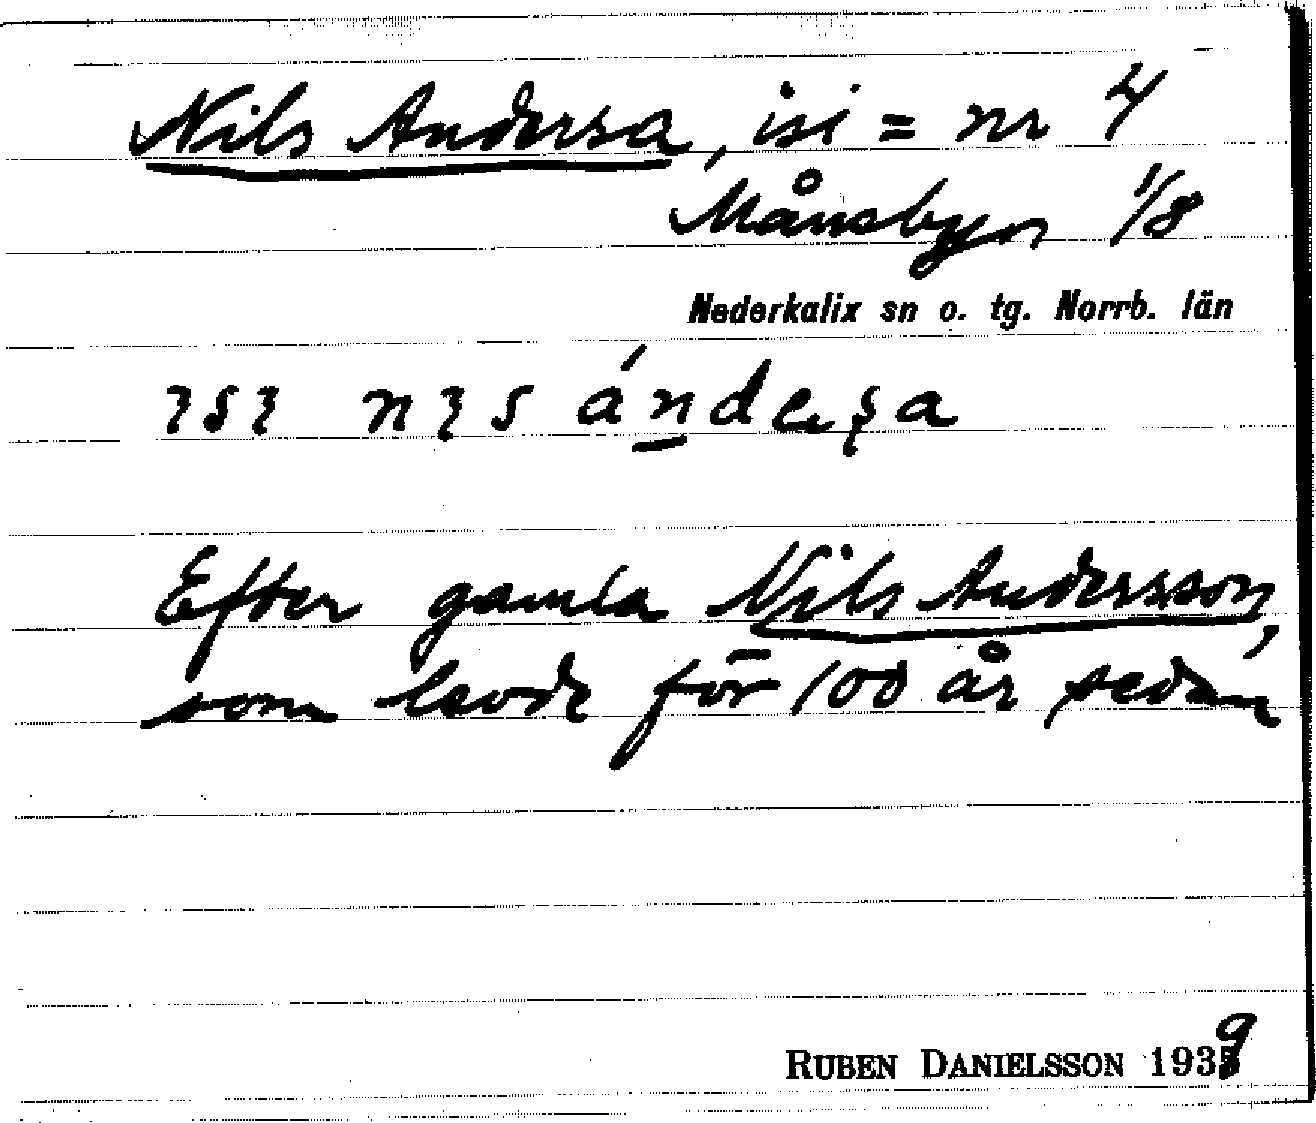 Nils Andersa, isi = nr 4
Månsbyn 1/8
Nederkalix sn o. tg. Norrb. län
ısı nıs ándeʂa
Efter gamla Nils Andersson,
som levde för 100 år sedan
RUBEN DANIELSSON 1939